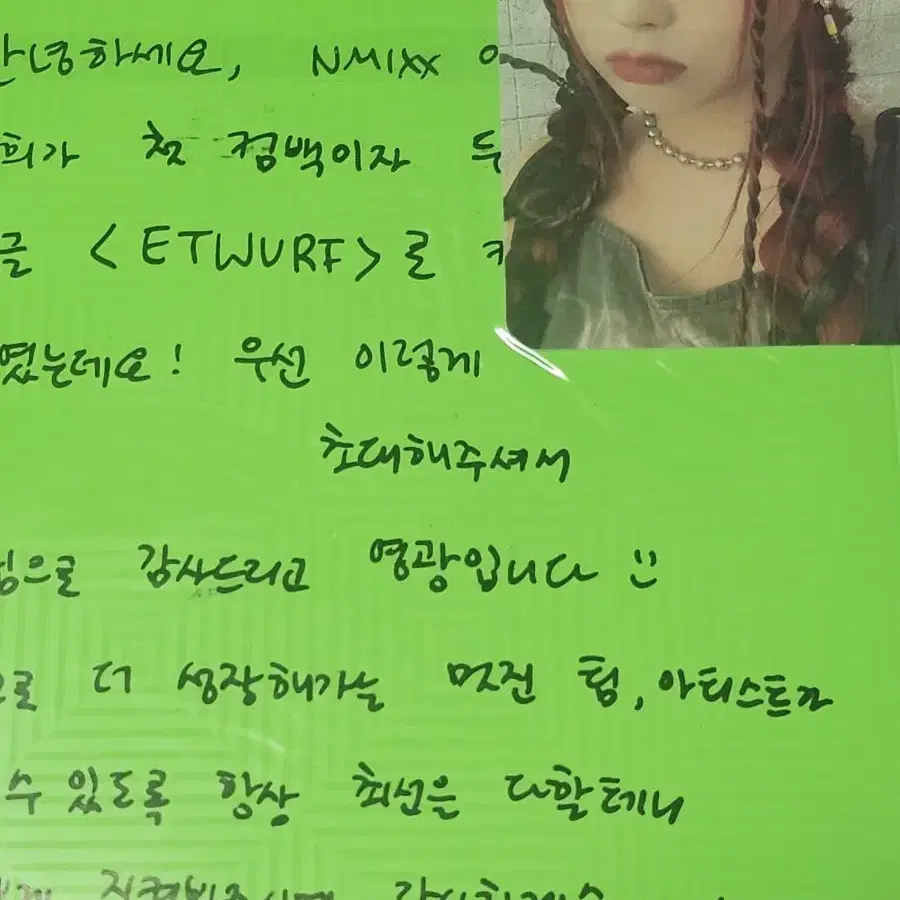 안녕하세요, NMIXX
희가 첫 컴백이자 두
글 <ETWURF>로
였는데요! 우선 이렇게
초대해주셔서
으로 감사드리고 영광입니다 :)
으로 더 성장해가는 멋진 팀, 아티스트가
수 있도록 항상 최선은 다할테니